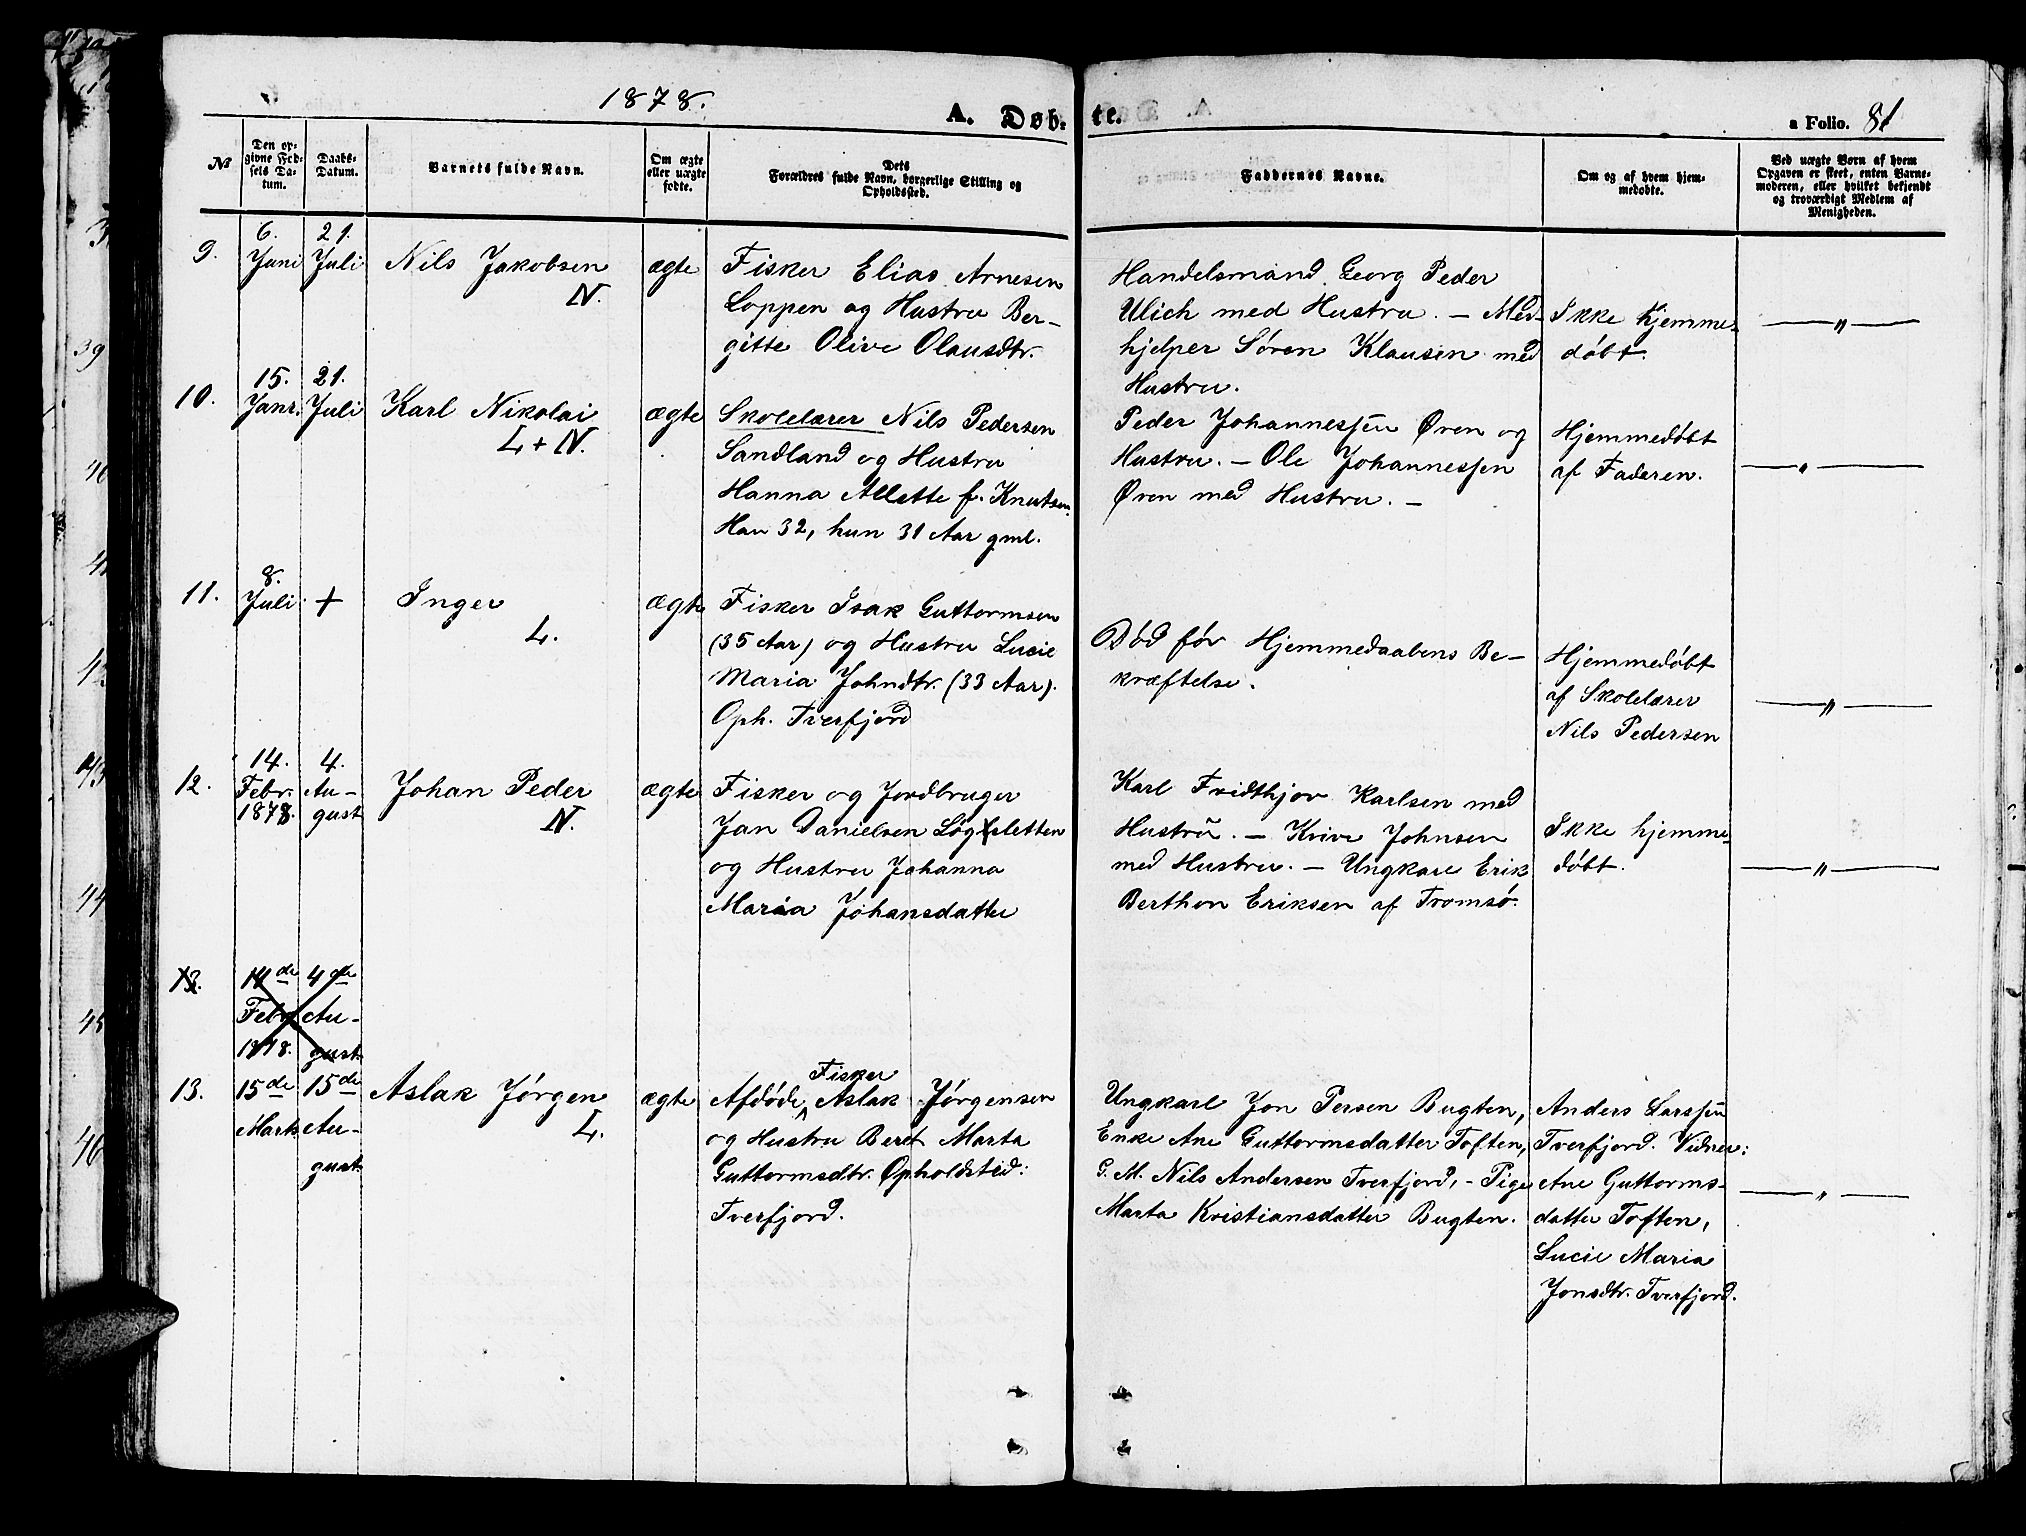 1878.
A. Døb-
te.
a Folio. 81
No
Den op-
givne Fød-
sels Da-
tum.
Daabs-
Datum.
Barnets fulde Navn.
Om ægte
eller uægte
fødte.
Dets
Forældres fulde Navn, borgerlige Stilling og
Opholdssted.
Faddernes Navne.
Om og af hvem hjem-
medøbte.
Ved uægte Born af hvem
Opgaven er skeet, enten Barne-
moderen, eller hvilket bekjendt
og troværdigt Medlem af
Menigheden.
9.
6.
Juni
21.
Juli
Nils Jakobsen
N.
ægte
Fisker Elias Arnesen
Loppen og Hustru Ber-
gitte Olive Olausdtr.
Handelsmand Georg Peder
Ulich med Hustru. – Med-
hjelper Søren Klausen med
Hustru.
Ikke hjemme-
døbt.
—"—
10.
15.
Janr.
21.
Juli
Karl Nikolai
L + N.
ægte
Skolelærer Nils Pedersen
Sandland og Hustru
Hanna Allette f. Knutsen.
Han 32, hun 31 Aar gml.
Peder Johannessen Øren og
Hustru. – Ole Johannessen
Øren med Hustru. –
Hjemmedøbt
af Faderen.
—"—
11.
8.
Juli
+
Inger
L.
ægte
Fisker Isak Guttormsen
(35 Aar) og Hustru Lucie
Maria Johndtr. (33 Aar).
Oph. Tverfjord
Død før Hjemmedaabens Be-
kræftelse.
Hjemmedøbt
af Skolelærer
Nils Pedersen
—"—
12.
14.
Febr.
1878.
4.
Au-
gust
Johan Peder
N.
ægte
Fisker og Jordbruger
Jan Danielsen Løgsletten
og Hustru Johanna
Maria Johansdatter
Karl Fridthjov Karlsen med
Hustru. – Kvive Johnsen
med Hustru. – Ungkare Erik
Berthon Eriksen af Tromsø.
Ikke hjemme-
døbt.
—"—
13.
14de
Febr.
1878.
4de
Au-
gust
13.
15de
Marts
15de
Au-
gust
Aslak Jørgen
L.
ægte
Fisker
Afdøde, Aslak Jørgensen
og Hustru Beret Marta
Guttormsdtr. Opholdsted:
Tverfjord.
Ungkarl Jon Persen Bugten,
Enke Ane Guttormsdatter Toften,
G. M. Nils Andersen Tverfjord, – Pige
Marta Kristiansdatter Bugten.
Anders Larssen
Tverfjord. Vidner:
Ane Guttorms-
datter Toften,
Lucie Maria
Jonsdtr. Tverfjord.
—"—
39
40
42
43
44
45
46